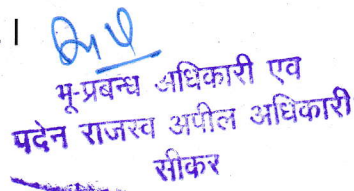 ।
भू-प्रबन्ध अधिकारी एव
पदेन राजस्व अपील अधिकारी
सीकर